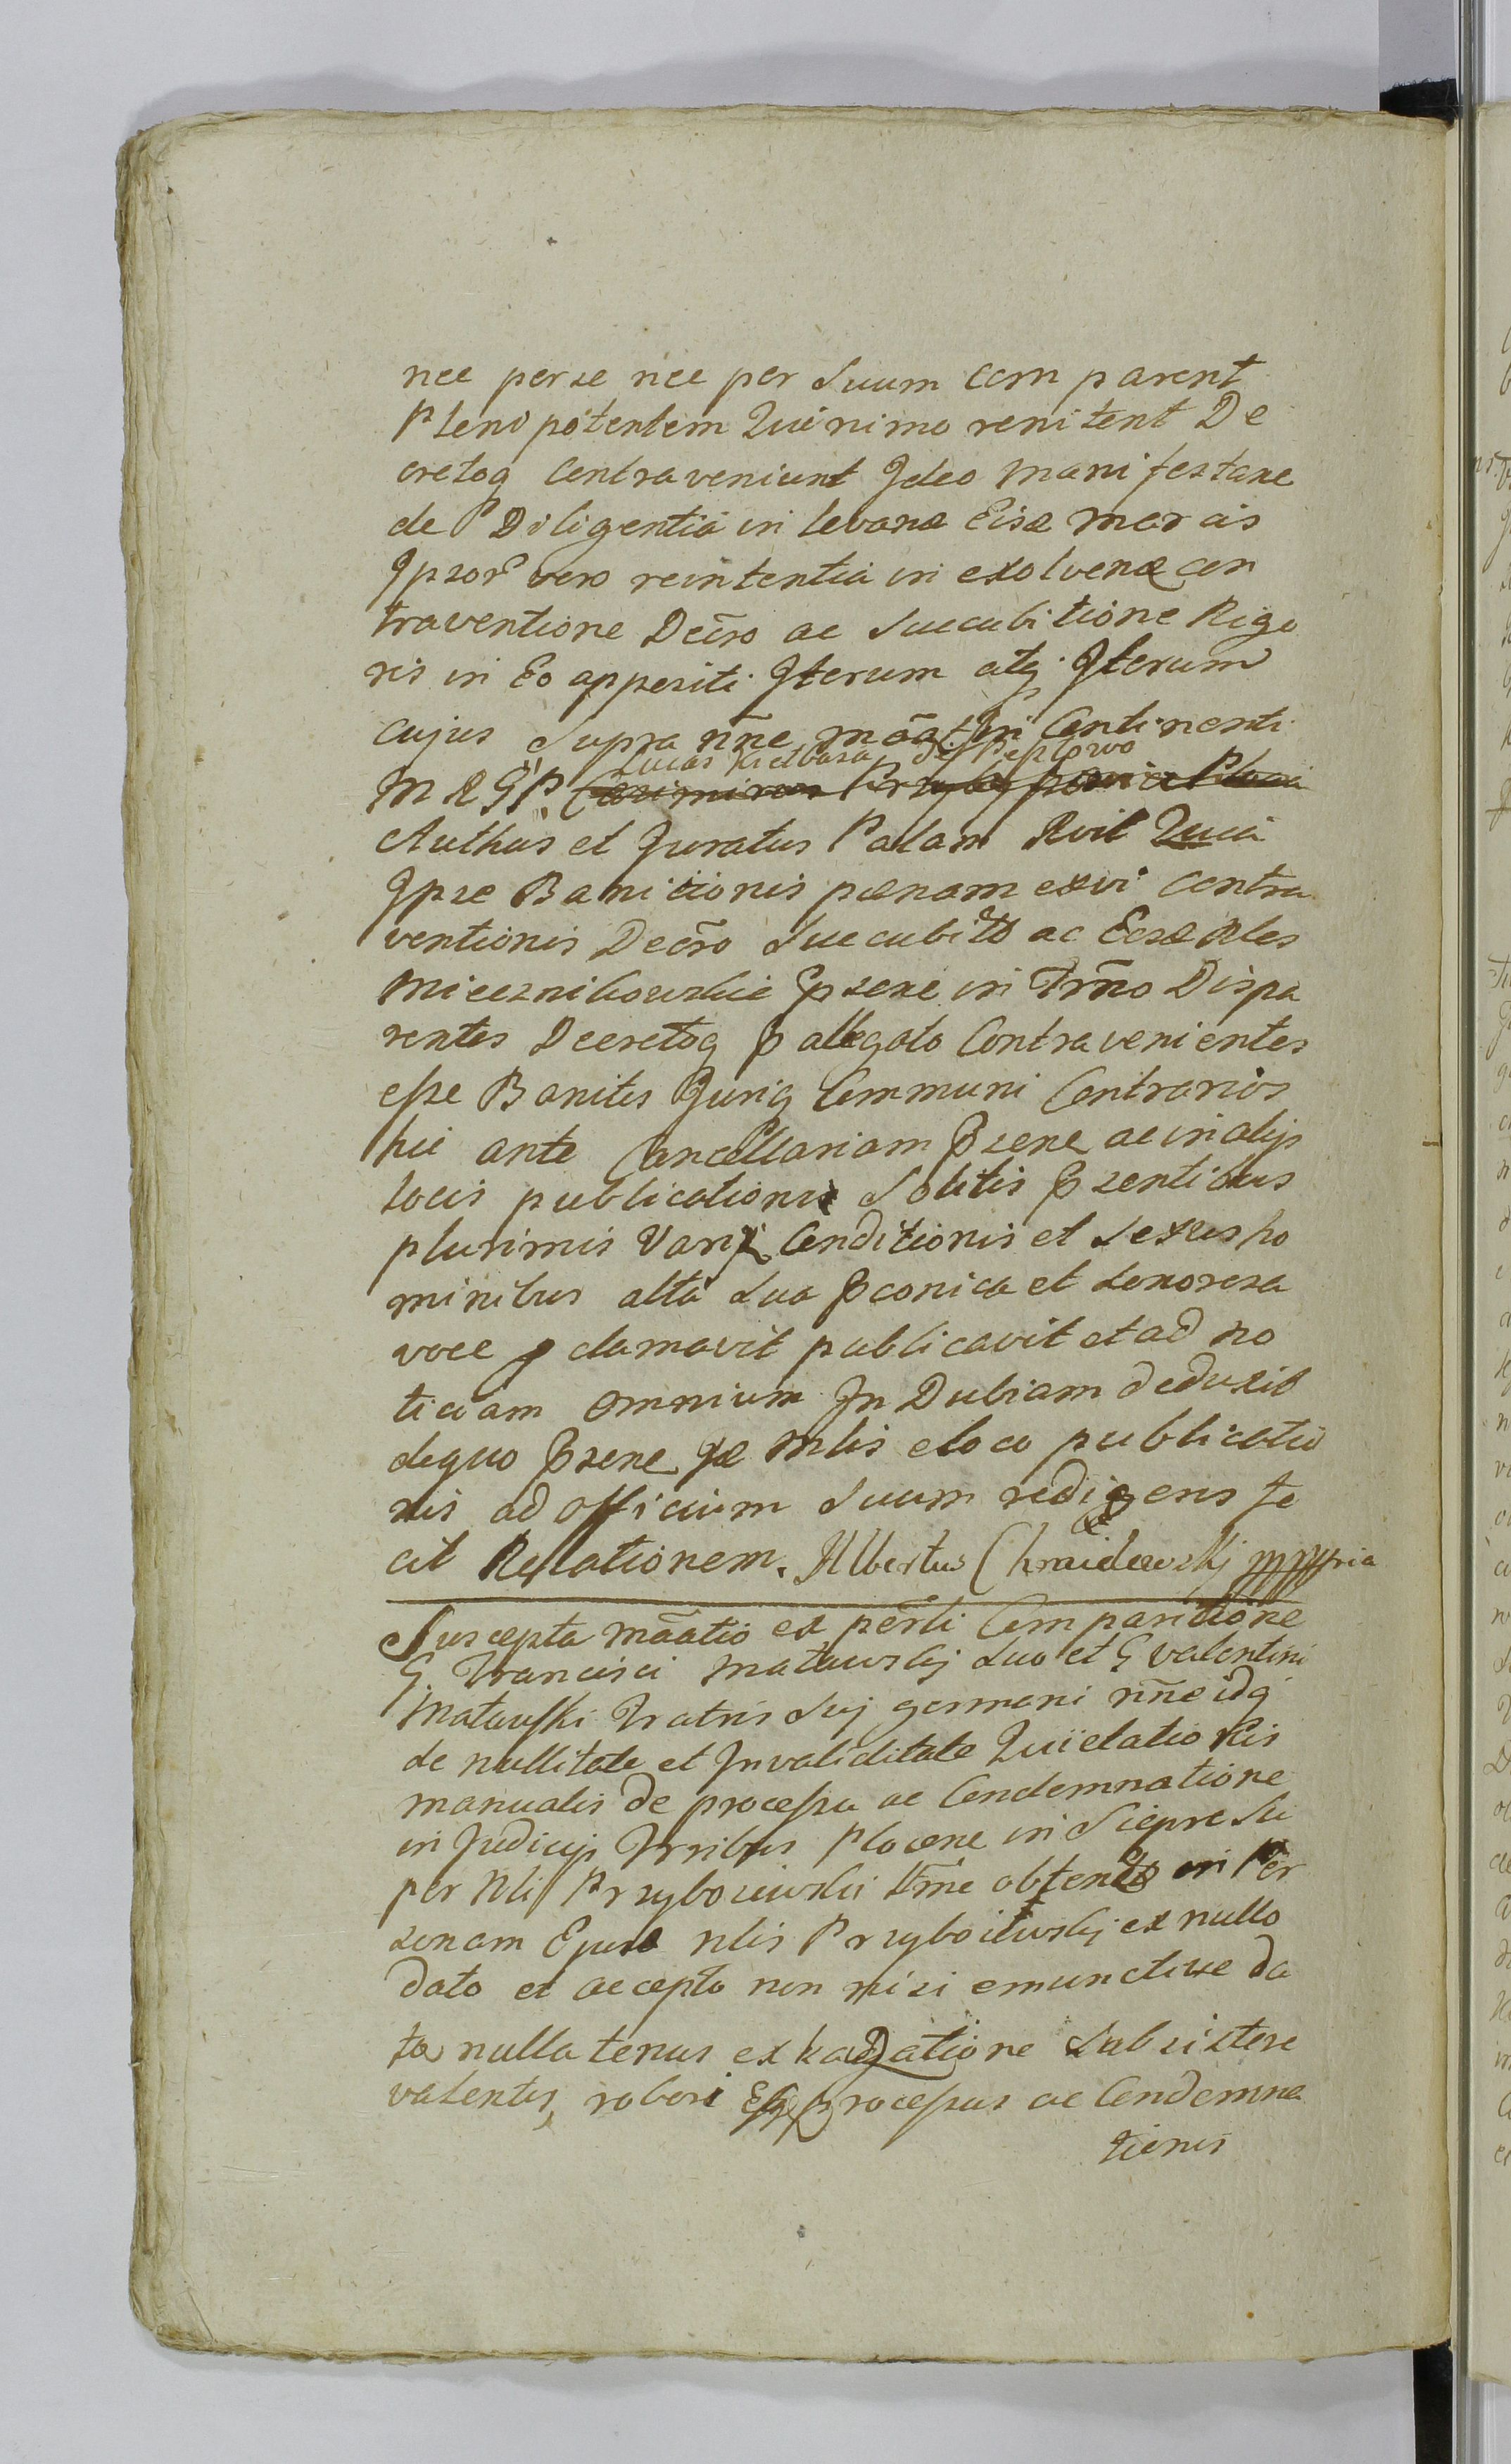 nec per se nec per Suum com parent
Pleno potentem Quinimo renitent De
cretoq contraveniunt Ideo manifestare
de Diligentia in levanæ Eisæ moras
Ipsor vero reintentia in exolvenæ con
traventione Decro ac Succubitione Rigo
ris in Eo appositi Iterum atq Iterum
cujus Supra nne In Continenti
Lucas Kiełbasa de Peplowo
M R G P.
Authus et Juratus Palam Quia
Ipse Banicionis pænam exivi contra
ventionis Decro Succubito ac Ecsæ Nles
Miecznikowskie pzene in Trno Dispa
rentes Decretoq p allegato Contravenientes
esse Banitos Juriq Communi Contrarios
hic ante Cancellariam pzene ac in alys
locis publicationis Solitis pzentibus
plurimis Vary Conditionis et Sexus ho
minibus alta Sua pconica et Sonorosa
voce p clamavit publicavit et ad no
ticiam omnium In Dubiam deduxit
de quo pzene Mlis eloco publicatio
nis ad officium Suum redigens fe
cit Relationem. Albertus Chmielewskj mppria
Suscepta maatio ex persli Comparitione
G. Francisci Matawskj Suo et G Valentini
Matawski Fratris Suj germani nne idq
de nullitate et Invaliditate Quietationis
manualis de processu ac Condemnatione
in Judicys Trribus Plocene in Sieprc Su
per Nli Przyboiewski Ltme obtento in Per
sonam Ejusd Nlis Przyboiewskj ex nullo
dato et accepto non nisi emunctive da
ta nulla tenus ex ratione Subsistere
valentis, robori Esq processus ac Condemna
tionis